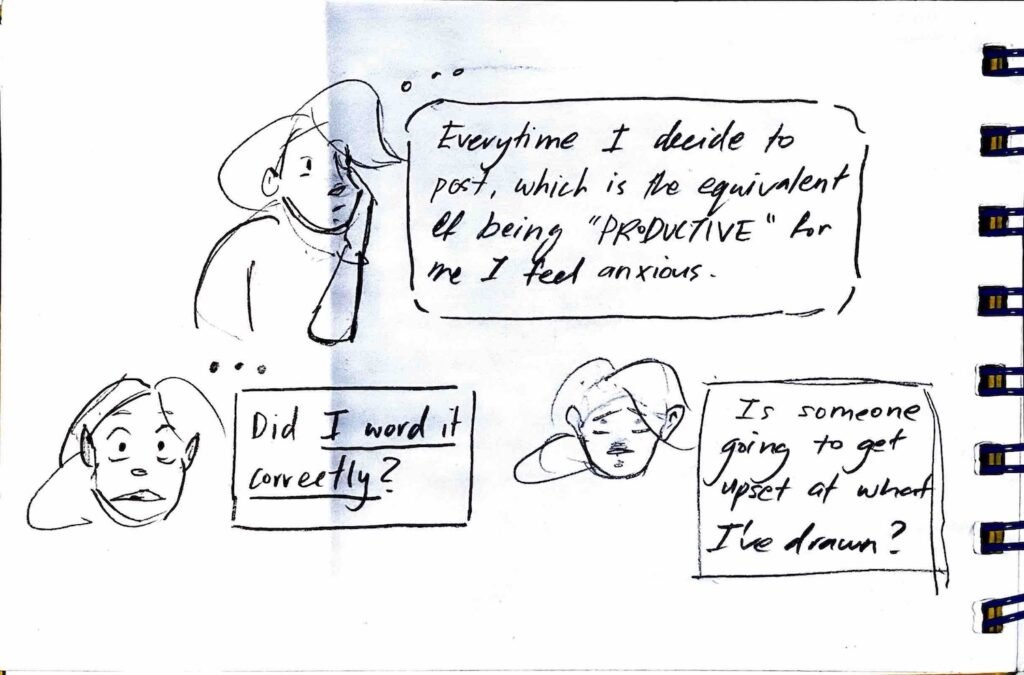 Everytime I decide to
post, which is the equivalent
of being "PRODUCTIVE" for
me I feel anxious.
Did I word it
correctly?
Is someone
going to get
upset at what
I've drawn?